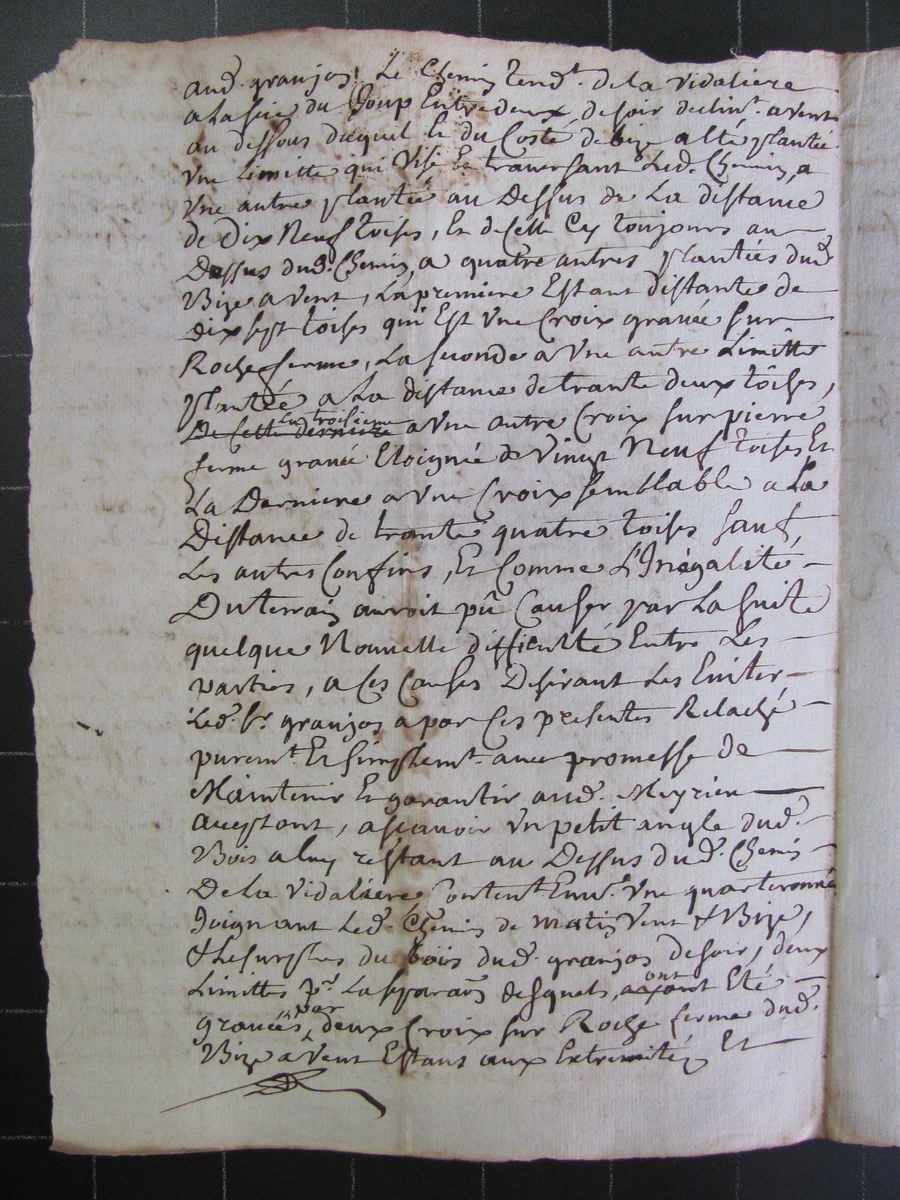 aud. granjos, Le Chemin tend.t de la vidaliere
a la scie du Loup Entredeux, de soir declin.t a vent
au dessous duquel le du Costé de bize a été plantée
Une Limitte qui Vise En traversant Led. Chemin, a
Une autre plantée au Dessus de La distance
de Dix Neuf toises, Et de Celle Cy toujours au
Dessus dud. Chemin, a quatre autres plantées dud.
Bize a vent, La premiere Estant distante de
dix sept toises qui Est Une Croix gravée sur
Roche ferme, La seconde a Une autre Limitte
plantée a La distance de trante deux toises,
De Cette derniere La troisieme a Une autre Croix sur pierre
ferme gravée Eloignée de Vingt Neuf toises Et
La Derniere a Une Croix semblable a La
Distance de trante quatre toises sauf,
Les autres Confins, Et Comme L'Inégalité
Du terrain auroit pû Causer par La suite
quelque Nouvelle difficulté Entre Les
parties, a Ces Causes Desirant Les Eviter
Led. Sr. granjos a par Ces presentes Relaché
purem.t Et simplem.t avec promesse de
Maintenir Et garantir aud. Meyrieu
acceptant, ascavoir Un petit angle dud.
Bois a luy réstant au Dessus dud. Chemin
De La Vidaliere Content.t Env.n Une quarteronnée
Joignant Led. Chemin de matin Vent & Bize,
& Le surplus du bois dud. granjos de soir, deux
Limittes p.r La separaõn desquels, ont Eté
gravées, par deux Croix sur Roche ferme dud.
Bize a Vent Estant aux Extremités Et